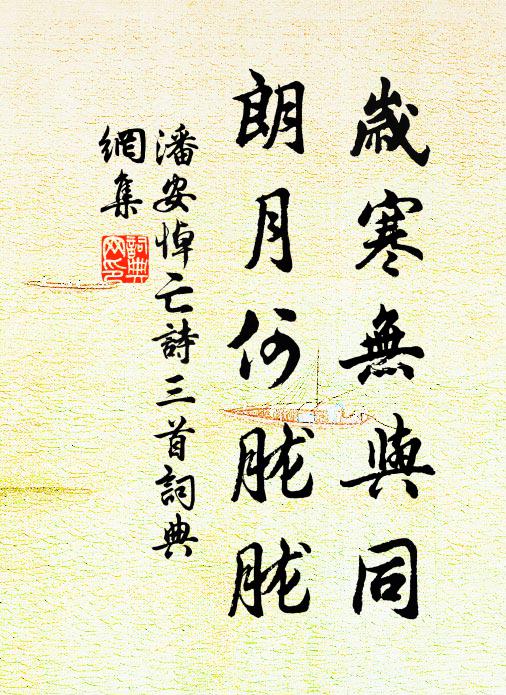 歲寒無與同
朗月何胧胧
潘安悼亡詩三首詞典
網集
詞典
网印